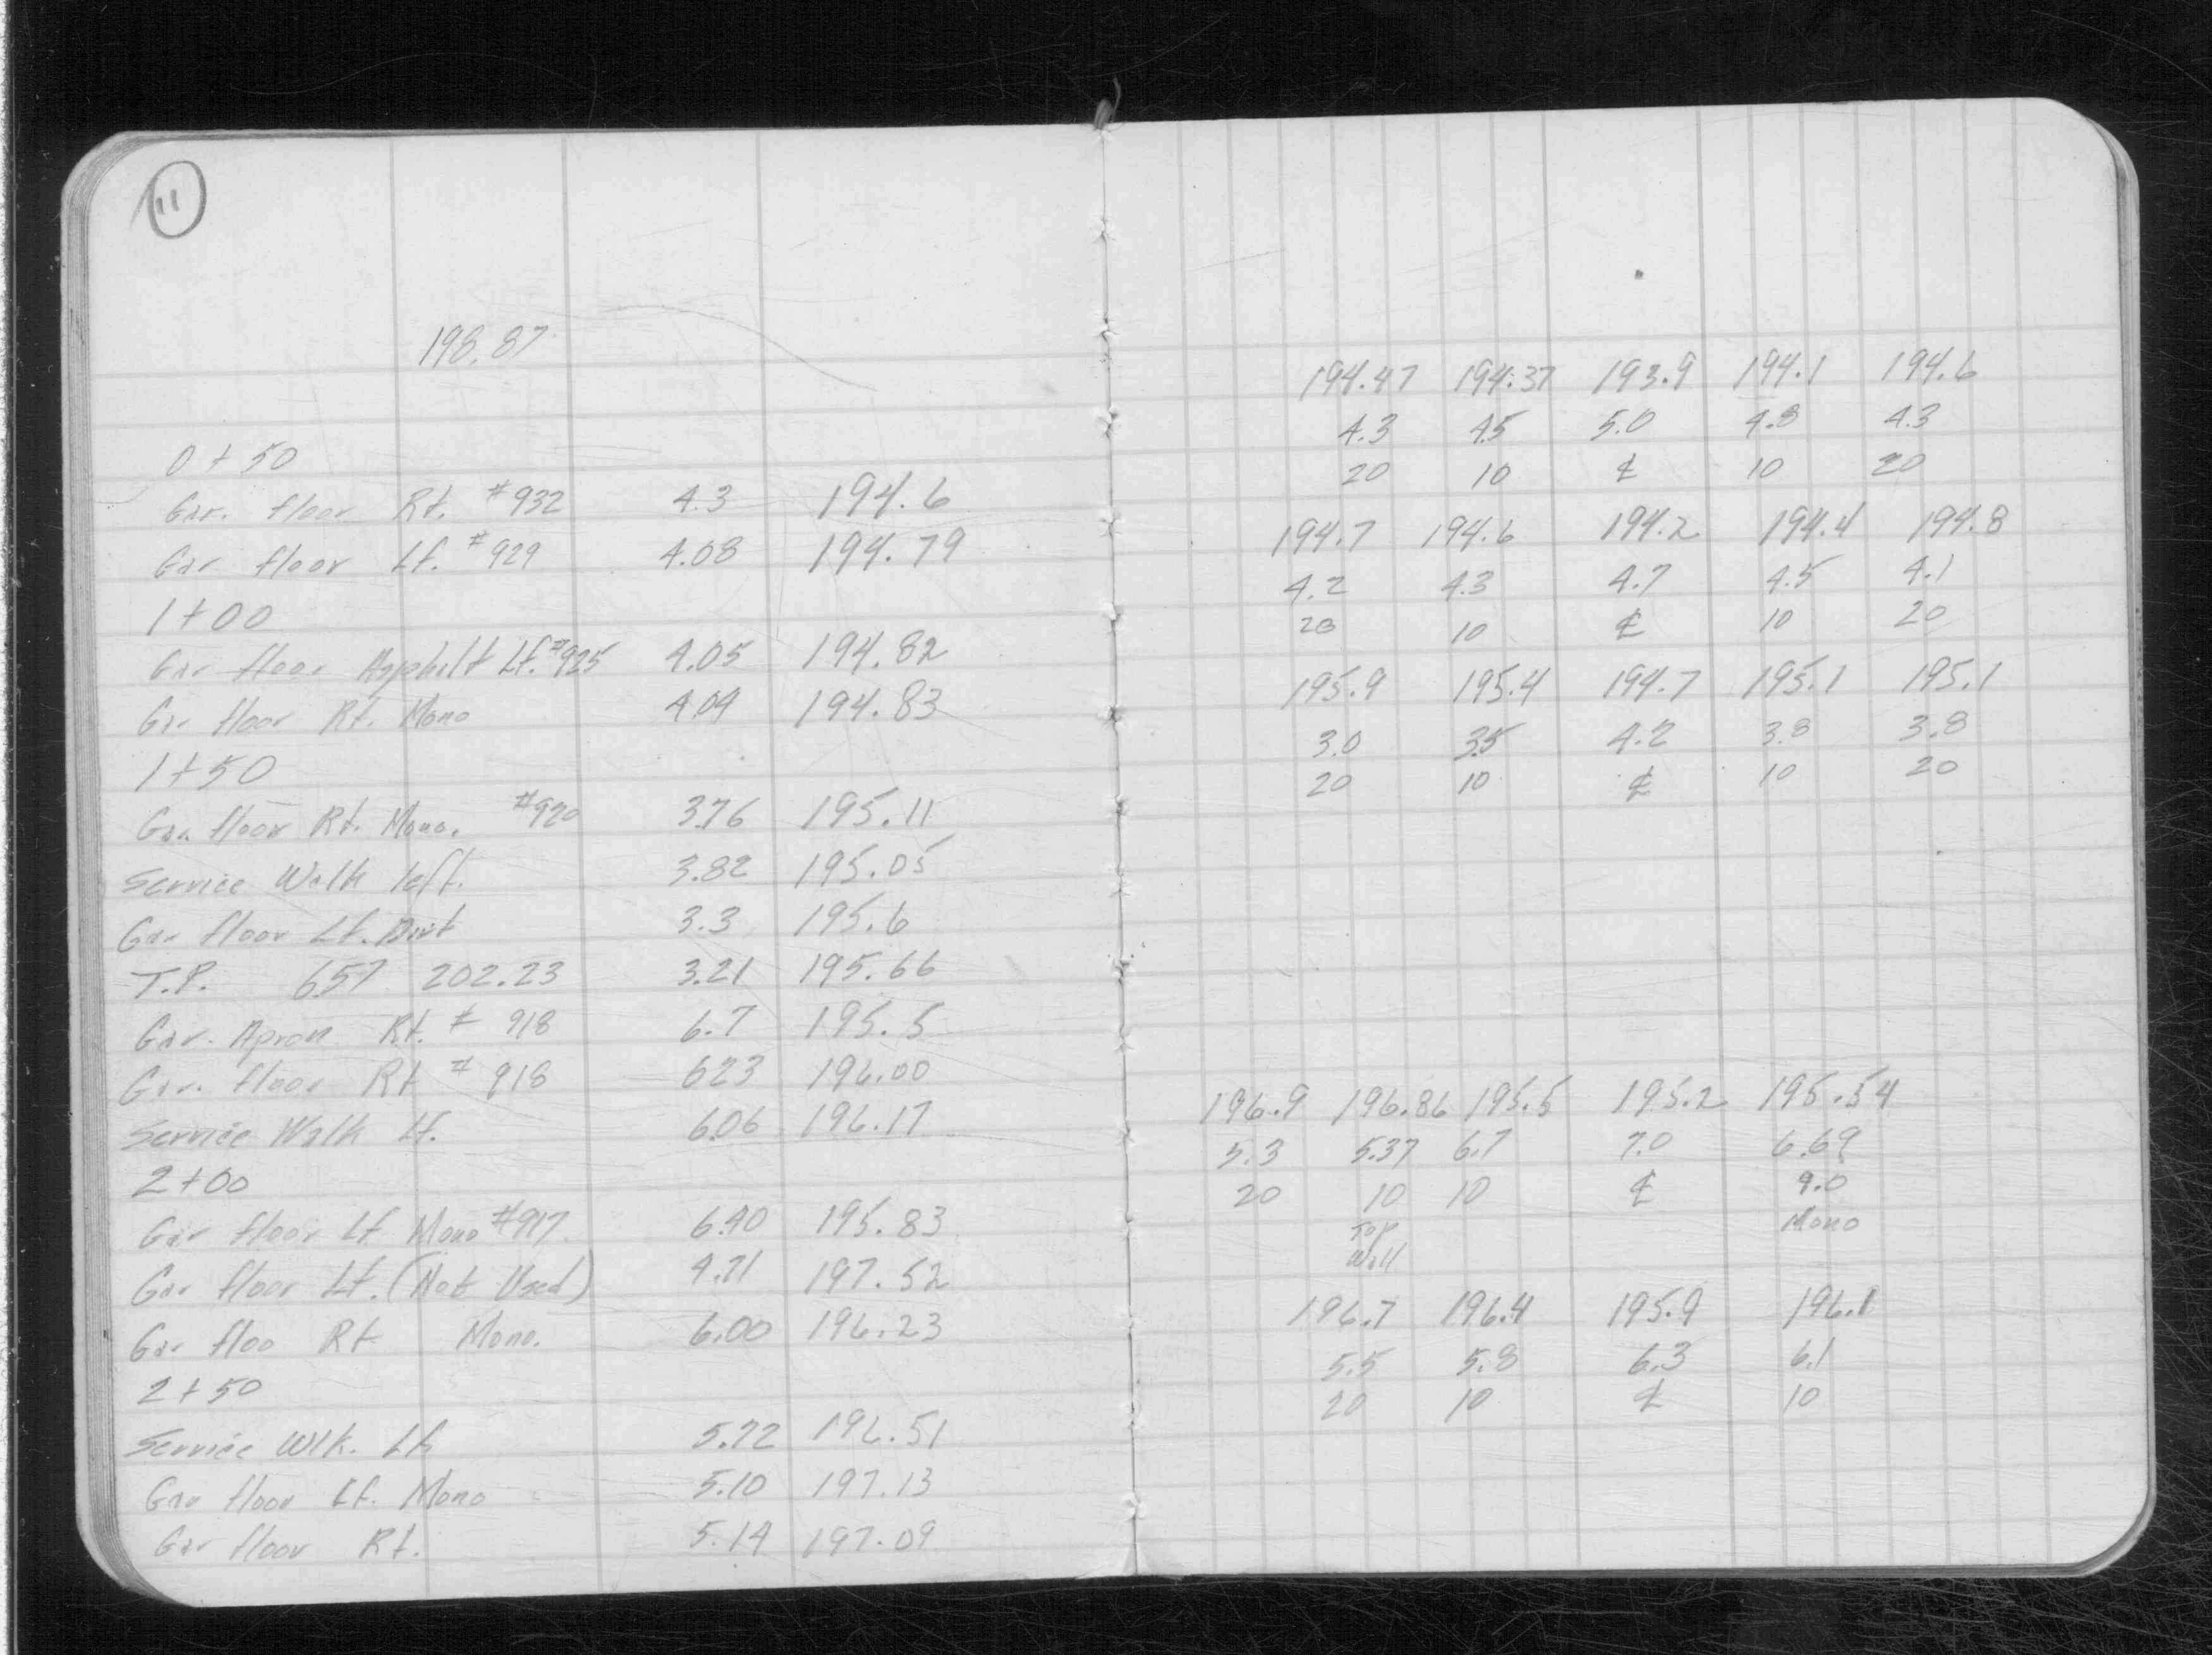 11
198.87
0+50
Gar. floor Rt. #932 4.3 194.6
Gar floor Lf. #929 4.08 194.79
1+00
Gar floor Asphalt Lf. #925 4.05 194.82
Gar floor Rt. Mono 4.04 194.83
1+50
Gar. floor Rt. Mono. #920 3.76 195.11
Service Walk left. 3.82 195.05
Gar floor Lf. Dirt 3.3 195.6
T.P. 6.57 202.23 3.21 195.66
Gar. Apron Rt. # 918 6.7 195.5
Gar. floor Rt # 918 6.23 196.00
Service Walk Lf. 6.06 196.17
2+00
Gar floor Lf Mono #917 6.40 195.83
Gar floor Lf. (Not Used) 4.71 197.52
Gar floo Rt Mono. 6.00 196.23
2+50
Service Wlk. Lf 5.72 196.51
Gar floor Lf. Mono 5.10 197.13
Gar floor Rt. 5.14 197.09
194.47 194.37 193.9 194.1 194.6
4.3 4.5 5.0 4.8 4.3
20 10 ℄ 10 20
194.7 194.6 194.2 194.4 194.8
4.2 4.3 4.7 4.5 4.1
20 10 ℄ 10 20
195.9 195.4 194.7 195.1 195.1
3.0 3.5 4.2 3.8 3.8
20 10 ℄ 10 20
196.9 196.86 195.5 195.2 195.54
5.3 5.37 6.7 7.0 6.69
20 10 10 ℄ 9.0
Top Mono
Wall
196.7 196.4 195.9 196.1
5.5 5.8 6.3 6.1
20 10 ℄ 10